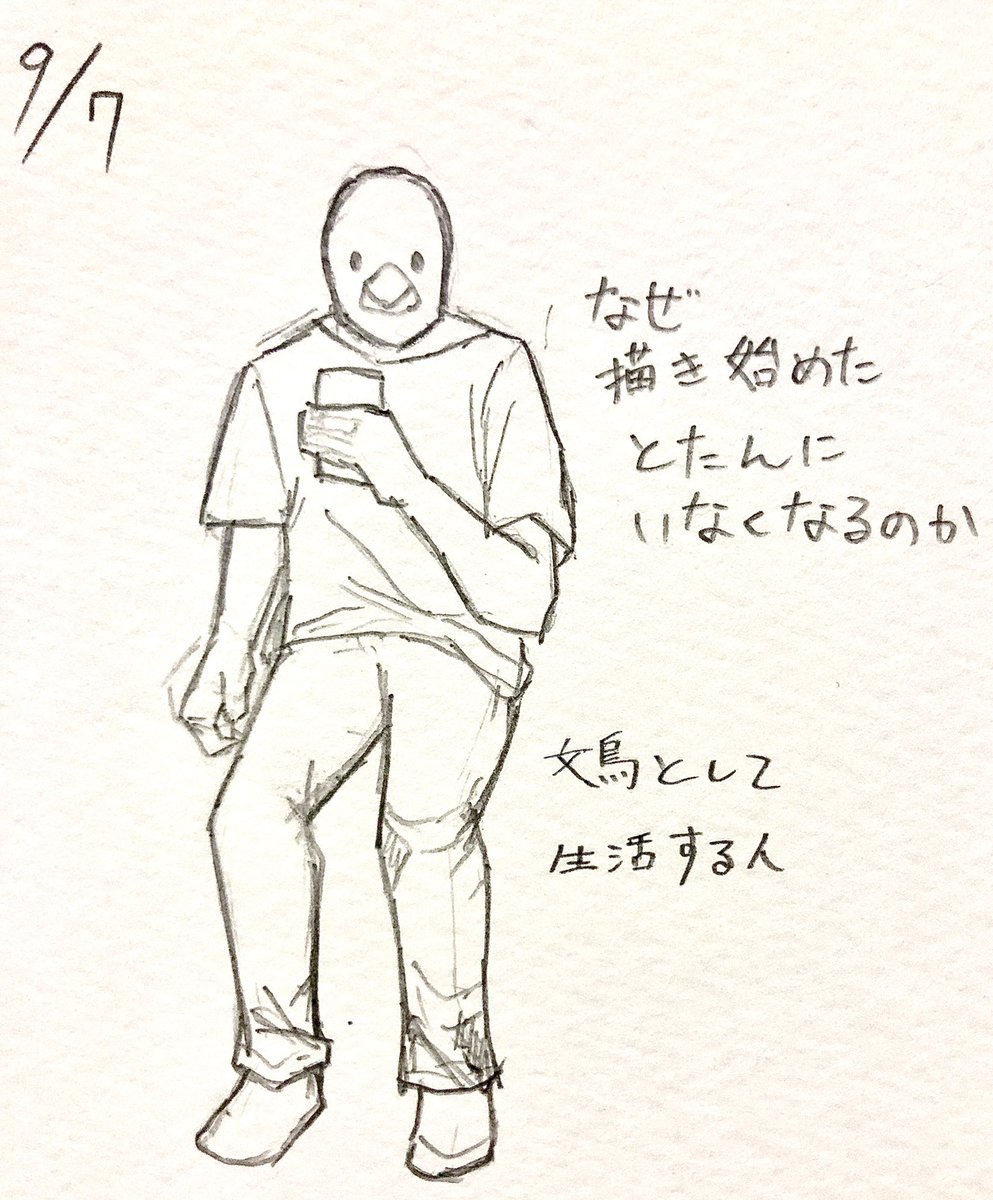 9/7
なぜ
描き始めた
とたんに
いなくなるのか
文鳥として
生活する人